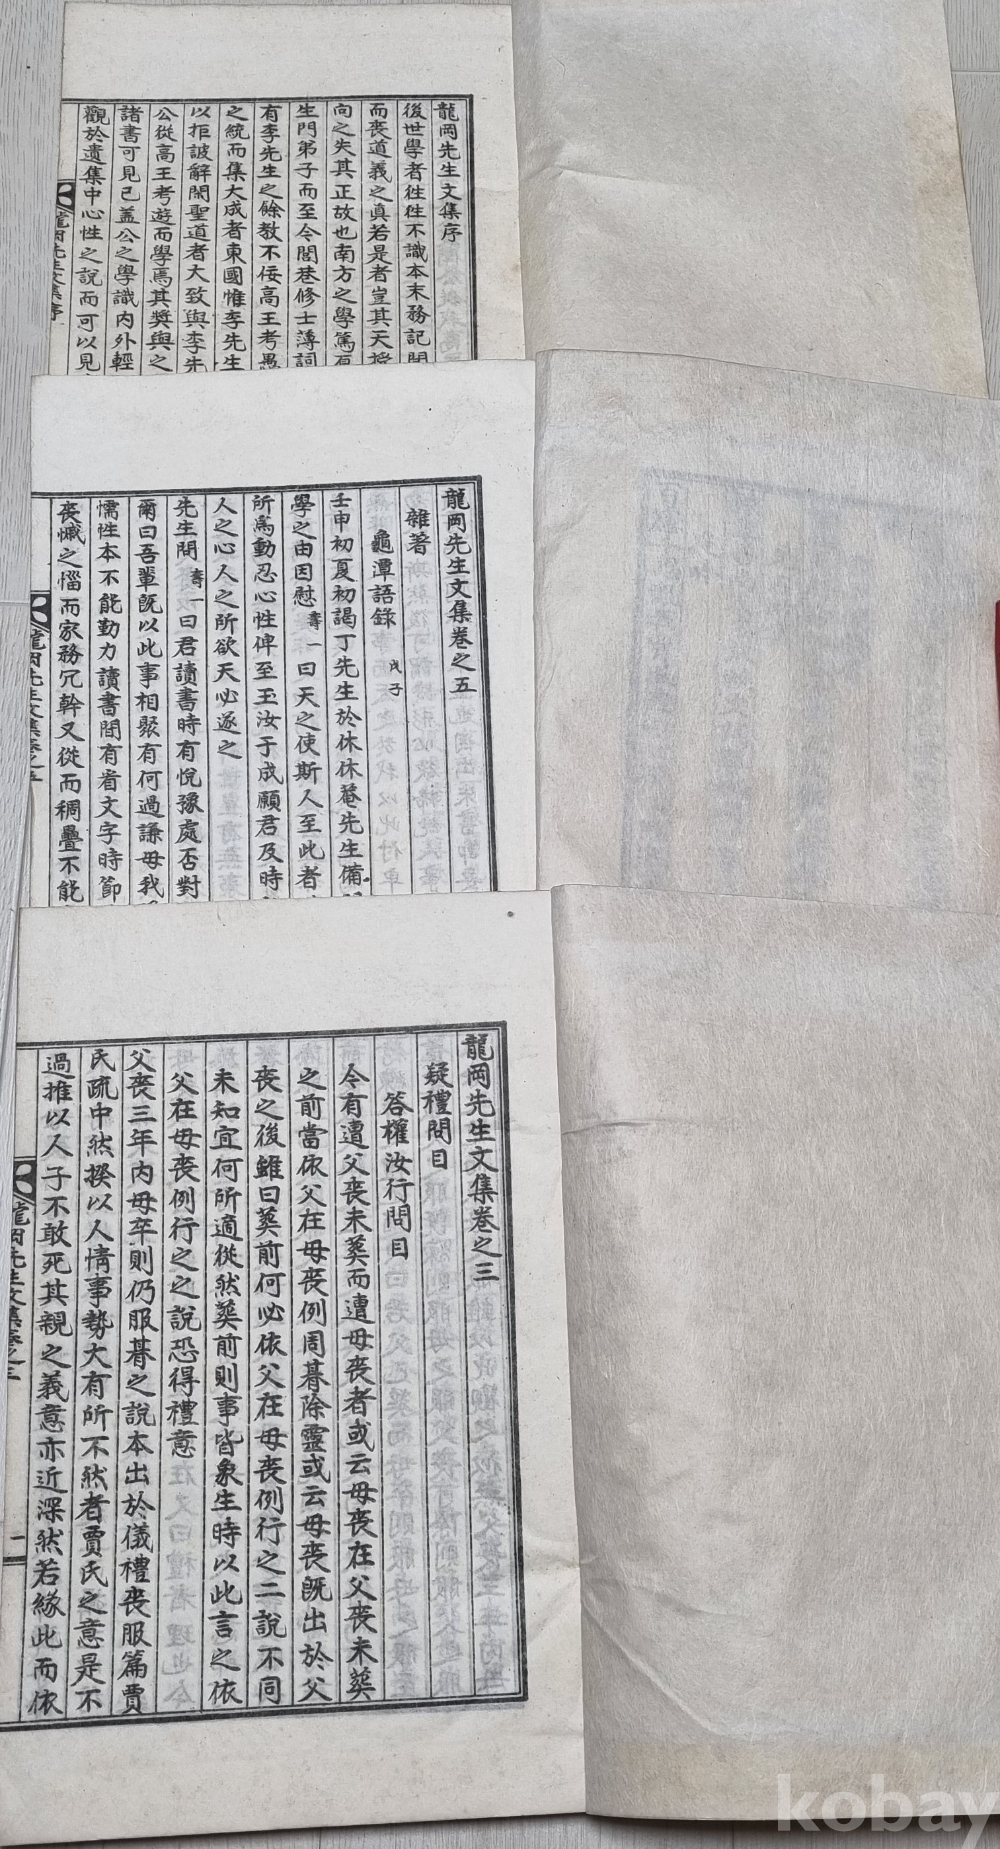 龍岡先生文集序
後世學者徃徃不識本末務記
而喪道義之眞若是者豈其天
向之失其正故也南方之學篤
生門弟子而至今閭巷修士薄詞
有李先生之餘敎不佞高王考愚
之統而集大成者東國惟李先生
以拒詖辭閑聖道者大致與李先
公從高王考遊而學焉其奬與之
諸書可見已盖公之學識內外輕
觀於遺集中心性之說而可以見
龍岡先生文集序
龍岡先生文集卷之五
雜著
龜潭語錄 戊子
壬申初夏初謁丁先生於休休菴先生備
學之由因慰 壽一 曰天之使斯人至此者
所爲動忍心性俾至玉汝于成願君及時
人之心人之所欲天必遂之
先生問 壽一 曰君讀書時有悅豫處否對
爾曰吾輩旣以此事相聚有何過謙毋我
懦性本不能勤力讀書間有看文字時節
喪慽之惱而家務冗幹又從而稠疊不能
龍岡先生文集卷之五
龍岡先生文集卷之三
疑禮問目
答權汝行問目
今有遭父喪未葬而遭母喪者或云母喪在父喪未葬
之前當依父在母喪例周朞除靈或云母喪旣出於父
喪之後雖曰葬前何必依父在母喪例行之二說不同
未知宜何所適從然葬前則事皆象生時以此言之依
父在母喪例行之之說恐得禮意
父喪三年內母卒則仍服朞之說本出於儀禮喪服篇賈
民疏中然揆以人情事勢大有所不然者賈氏之意是不
過推以人子不敢死其親之義意亦近深然若緣此而依
龍岡先生文集卷之三
一
kobay